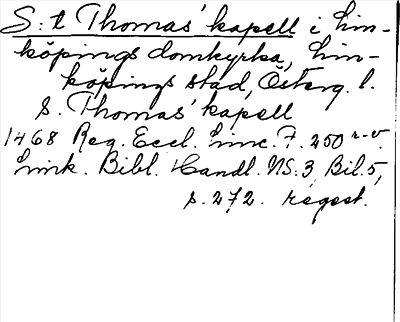 S:t Thomas' kapell i Lin-
köpings domkyrka, Lin-
köpings stad, Österg. l.
S. Thomas' kapell
1468 Reg. Eccl. Linc. F. 250 r-v.
Link. Bibl. Handl. NS. 3, Bil. 5,
s. 272. regest.